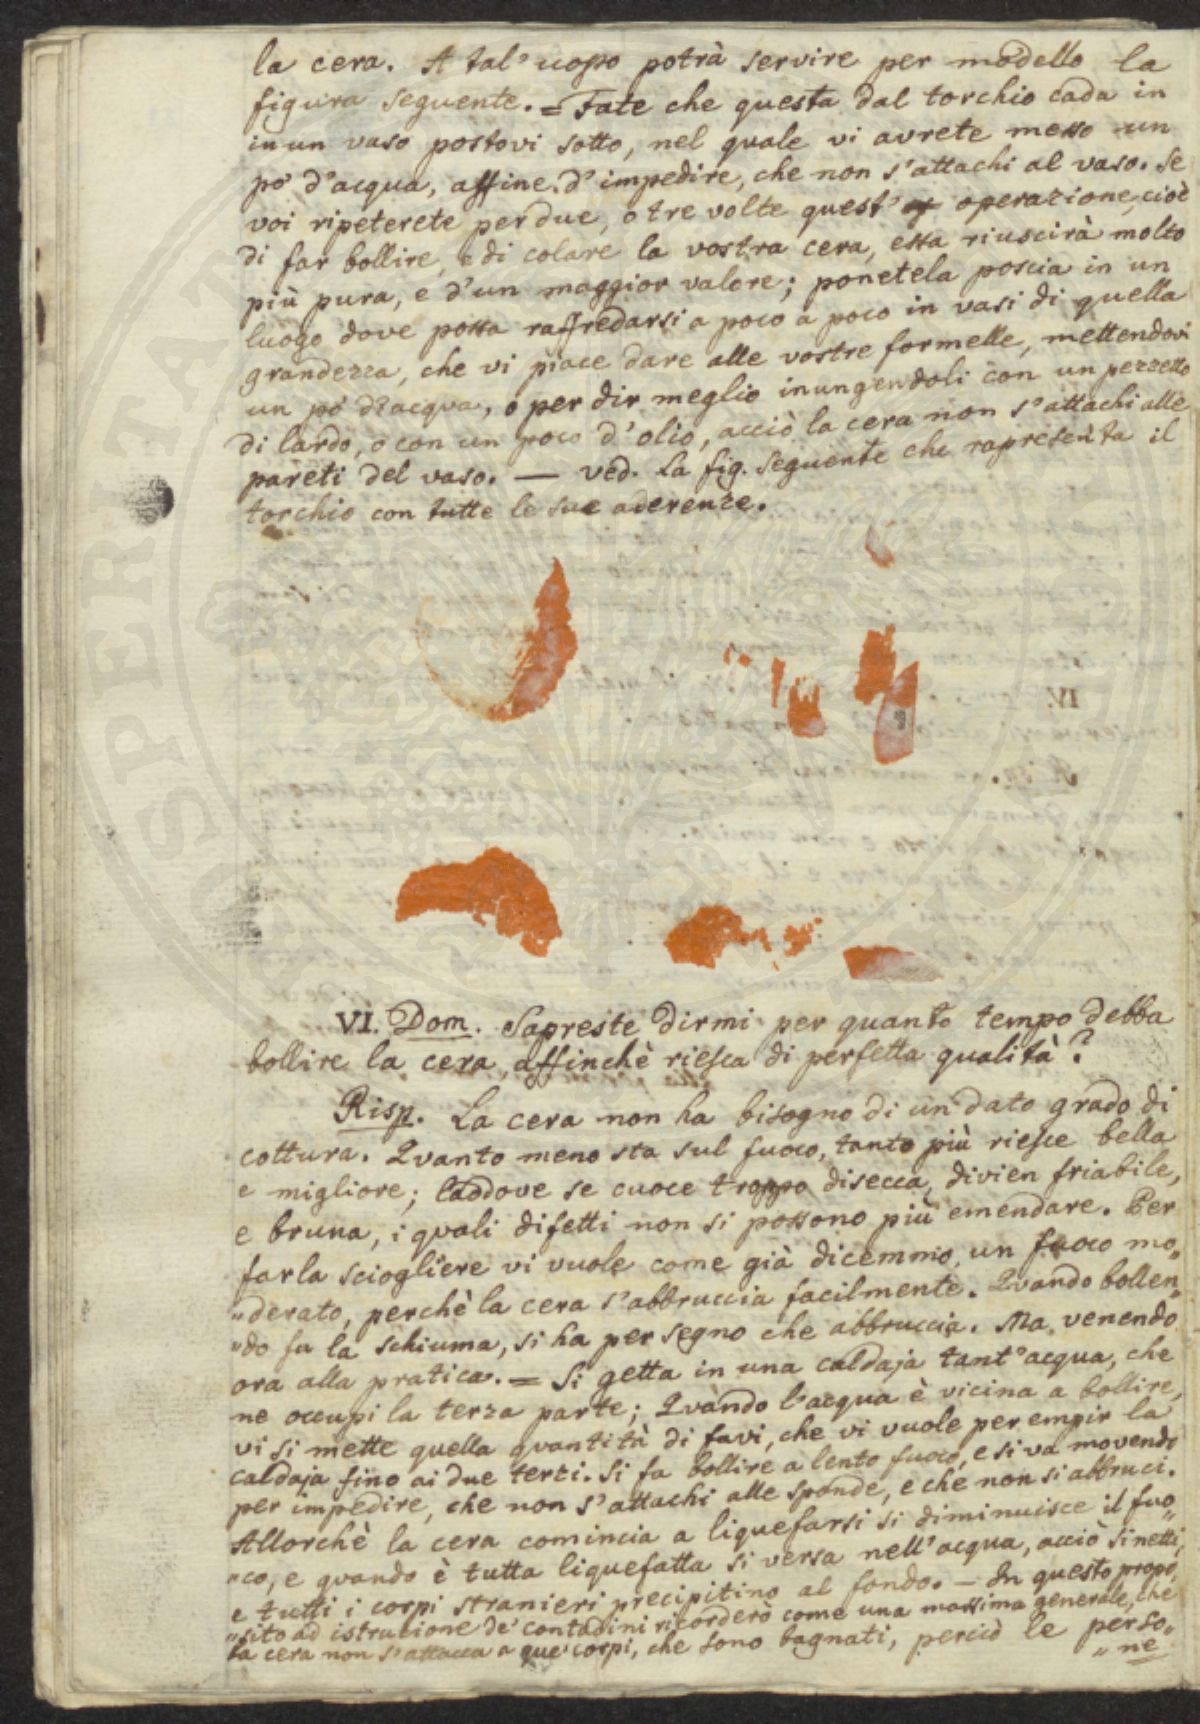 la cera. A tal'uopo potrà servire per modello la
figura seguente. = Fate che questa dal torchio cada in
in un vaso postovi sotto, nel quale vi avrete messo un
po' d'acqua, affine d'impedire, che non s'attachi al vaso. Se
voi ripeterete per due, o tre volte quest' operazione, cioè
di far bollire, e di colare la vostra cera, essa riuscirà molto
più pura, e d'un maggior valore; ponetela poscia in un
luogo dove possa raffredarsi a poco a poco in vasi di quella
grandezza, che vi piace dare alle vostre formelle, mettendovi
un po' d'acqua, o per dir meglio inungendoli con un pezzetto
di lardo, o con un poco d'olio, acciò la cera non s'attachi alle
pareti del vaso. — ved. La fig. seguente che rapresenta il
torchio con tutte le sue aderenze.
VI. Dom. Sapreste dirmi per quanto tempo debba
bollire la cera, affinchè riesca di perfetta qualità?
Risp. La cera non ha bisogno di un dato grado di
cottura. Quanto meno sta sul fuoco, tanto più riesce bella
e migliore; laddove se cuoce troppo disecca, divien friabile,
e bruna, i quali difetti non si possono più emendare. Per
farla sciogliere vi vuole come già dicemmo, un fuoco mo„
„derato, perchè la cera s'abbruccia facilmente. Quando bollen„
„do fa la schiuma, si ha per segno che abbruccia. Ma, venendo
ora alla pratica. = Si getta in una caldaja tant'acqua, che
ne occupi la terza parte; Quando l'acqua è vicina a bollire,
vi si mette quella quantità di favi, che vi vuole per empir la
caldaja fino ai due terzi. Si fa bollire a lento fuoco, e si va movendo
per impedire, che non s'attachi alle sponde, e che non si abbruci.
Allorchè la cera comincia a liquefarsi si diminuisce il fuo„
„co, e quando è tutta liquefatta si versa nell'acqua, acciò si netti,
e tutti i corpi stranieri precipitino al fondo. — In questo propo„
„sito ad istruzione de' contadini ricorderò come una massima generale, che
la cera non s'attacca a que' corpi, che sono bagnati, perciò le perso„
„ne